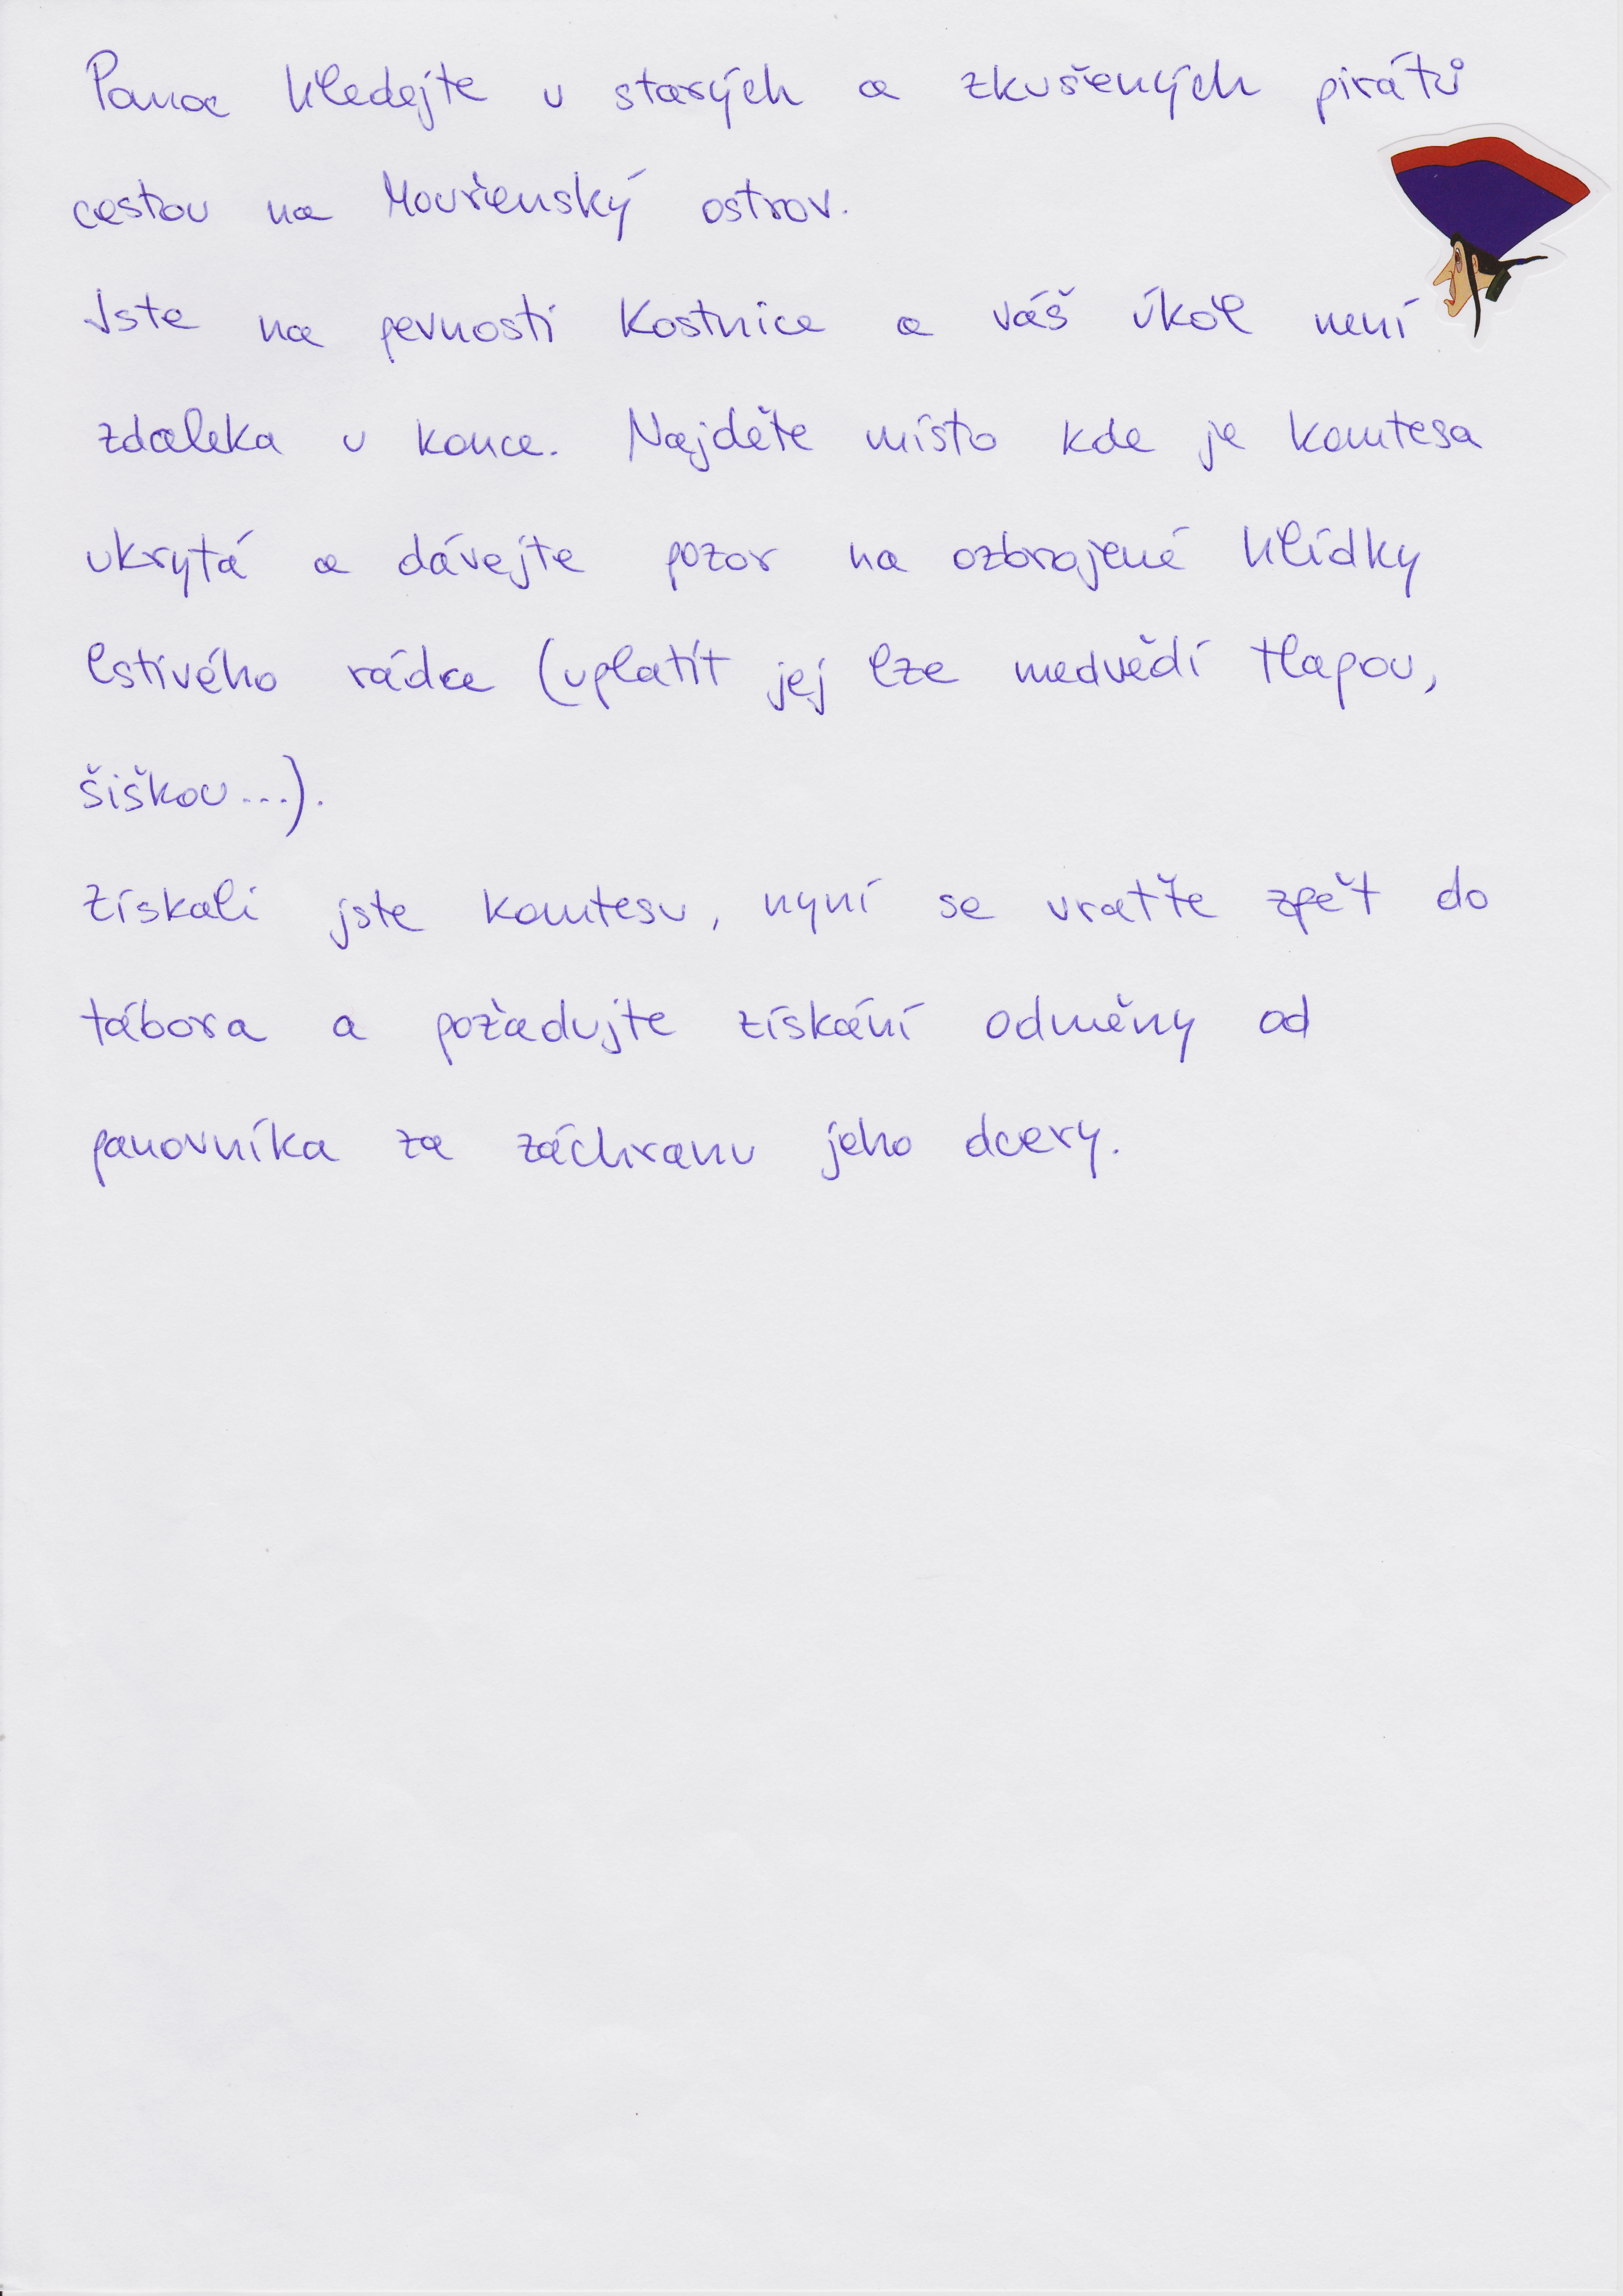 Pomoc hledejte u starých a zkušených pirátů
cestou na Mouřenský ostrov.
Jste na pevnosti Kostnice a váš úkol není
zdaleka u konce. Najděte místo kde je komtesa
ukrytá a dávejte pozor na ozbrojené hlídky
lstivého rádce (uplatit jej lze medvědí tlapou,
šiškou...).
Získali jste komtesu, nyní se vraťte zpět do
tábora a požadujte získání odměny od
panovníka za záchranu jeho dcery.